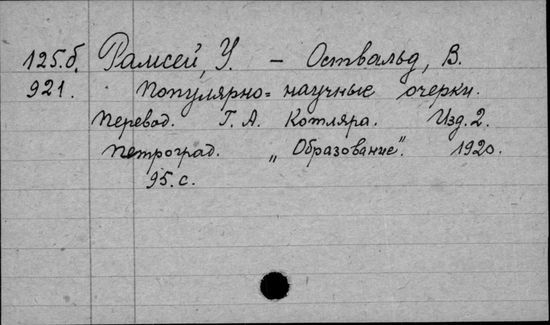 125.б. Рамсей, У. - Оствальд, В.
921. Популярно=научные очерки.
Перевод. Г. А. Котляра. Изд. 2.
Петроград. „Образование". 1920.
95. с.